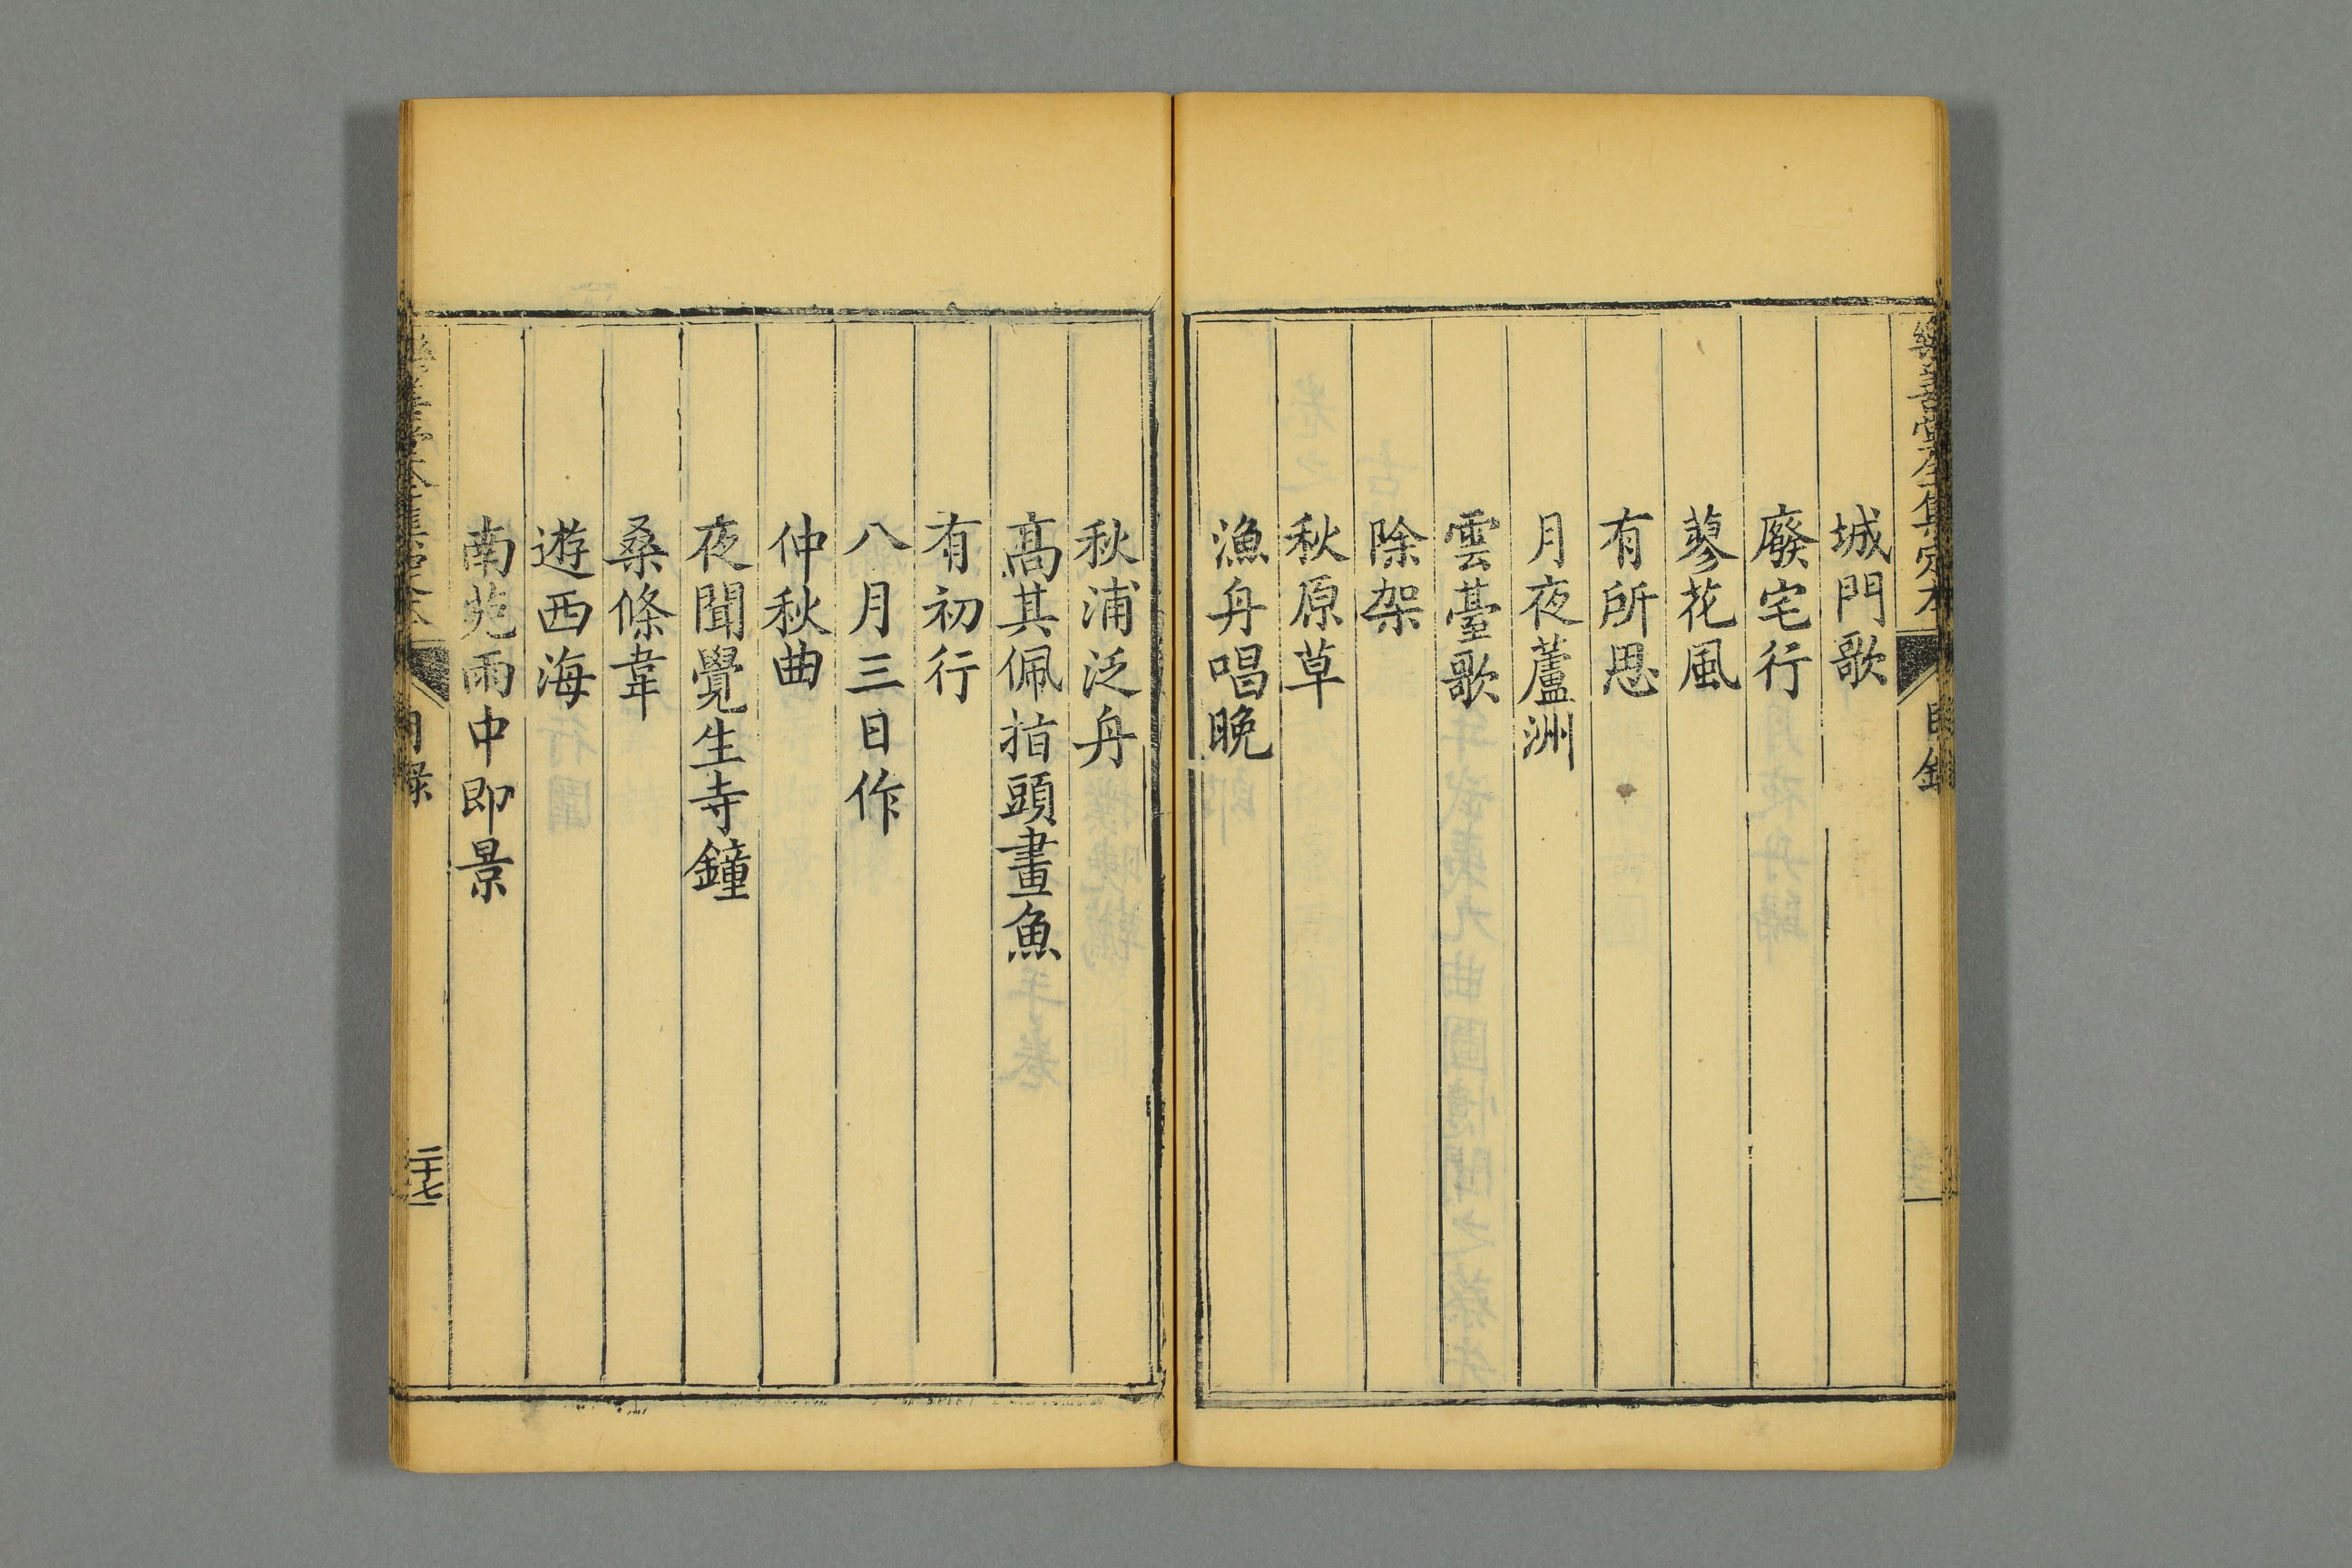 樂善堂全集定本
目錄
城門歌
廢宅行
蓼花風
有所思
月夜蘆洲
雲臺歌
除架
秋原草
漁舟唱晚
秋浦泛舟
高其佩指頭畫魚
有初行
八月三日作
仲秋曲
夜聞覺生寺鐘
桑條韋
遊西海
南苑雨中即景
樂善堂全集定本
目錄
二十七